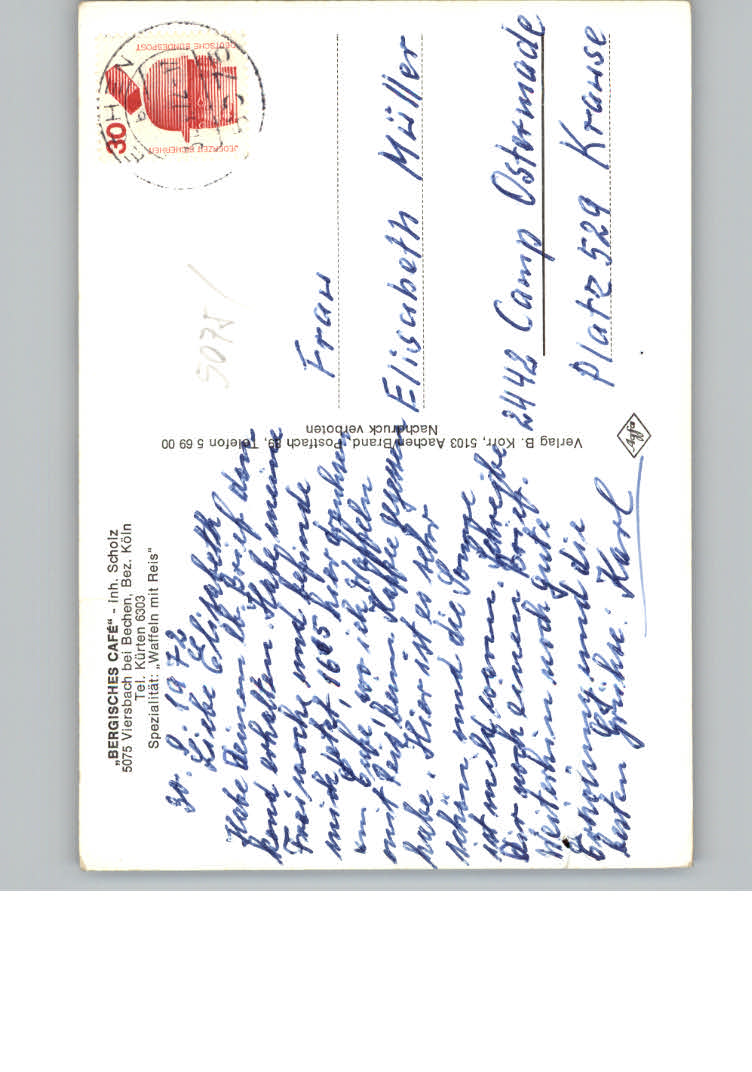 „BERGISCHES CAFÉ“ - Inh. Scholz
5075 Viersbach bei Bechen, Bez. Köln
Tel. Kürten 6303
Spezialität: „Waffeln mit Reis“
1972
Liebe Elisabeth
Habe Deinen lb. Brief dan-
kend erhalten. Habe meine
Freiwoche und befinde
mich jetzt, hier draußen
wo ich Waffeln
mit Reis, beim Kaffee gegessen
habe. Hier ist es sehr
schön und die Sonne
ist mild warm. Schreibe
Dir noch einen Brief.
Weiterhin noch gute
Erholung und die
besten Grüße. Karl
Verlag B. Korr, 5103 Aachen/Brand, Postfach 89, Telefon 5 69 00
Nachdruck verboten
Agfa
DEUTSCHE BUNDESPOST
JEDERZEIT SICHERHEIT
30
5075
Frau
Elisabeth Müller
2442 Camp Ostermade
Platz 529 Krause